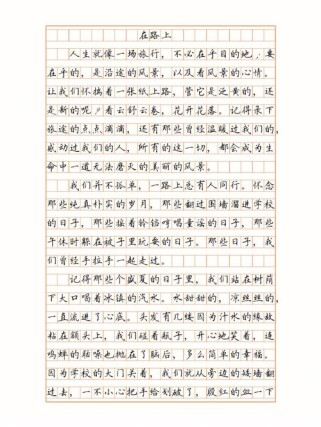 在路上
人生就像一场旅行，不必在乎目的地，要
在乎的，是沿途的风景，以及看风景的心情。
让我们怀揣着一张纸上路，管它是泛黄的，还
是新的呢，看云舒云卷，花开花落。记得录下
旅途的点点滴滴，还有那些曾经温暖过我们的，
感动过我们的人，所有的这一切，都会成为生
命中一道无法磨灭的美丽的风景。
我们并不孤单，一路上总有人同行。怀念
那些纯真朴实的岁月，那些翻过围墙溜进学校
的日子，那些摇着铃铛哼唱童谣的日子，那些
午休时躲在被子里玩耍的日子。那些日子，我
们曾经手拉手一起走过。
记得那些个盛夏的日子里，我们站在树荫
下大口喝着冰镇的汽水。水甜甜的，凉丝丝的，
一直流进了心底。头发有几缕因为汗水的缘故
粘在额头上，我们碰着瓶子，开心地笑着，连
鸣蝉的聒噪也抛在了脑后，多么简单的幸福。
因为学校的大门关着，我们就从旁边的矮墙翻
过去，一不小心把手给划破了，殷红的血一下